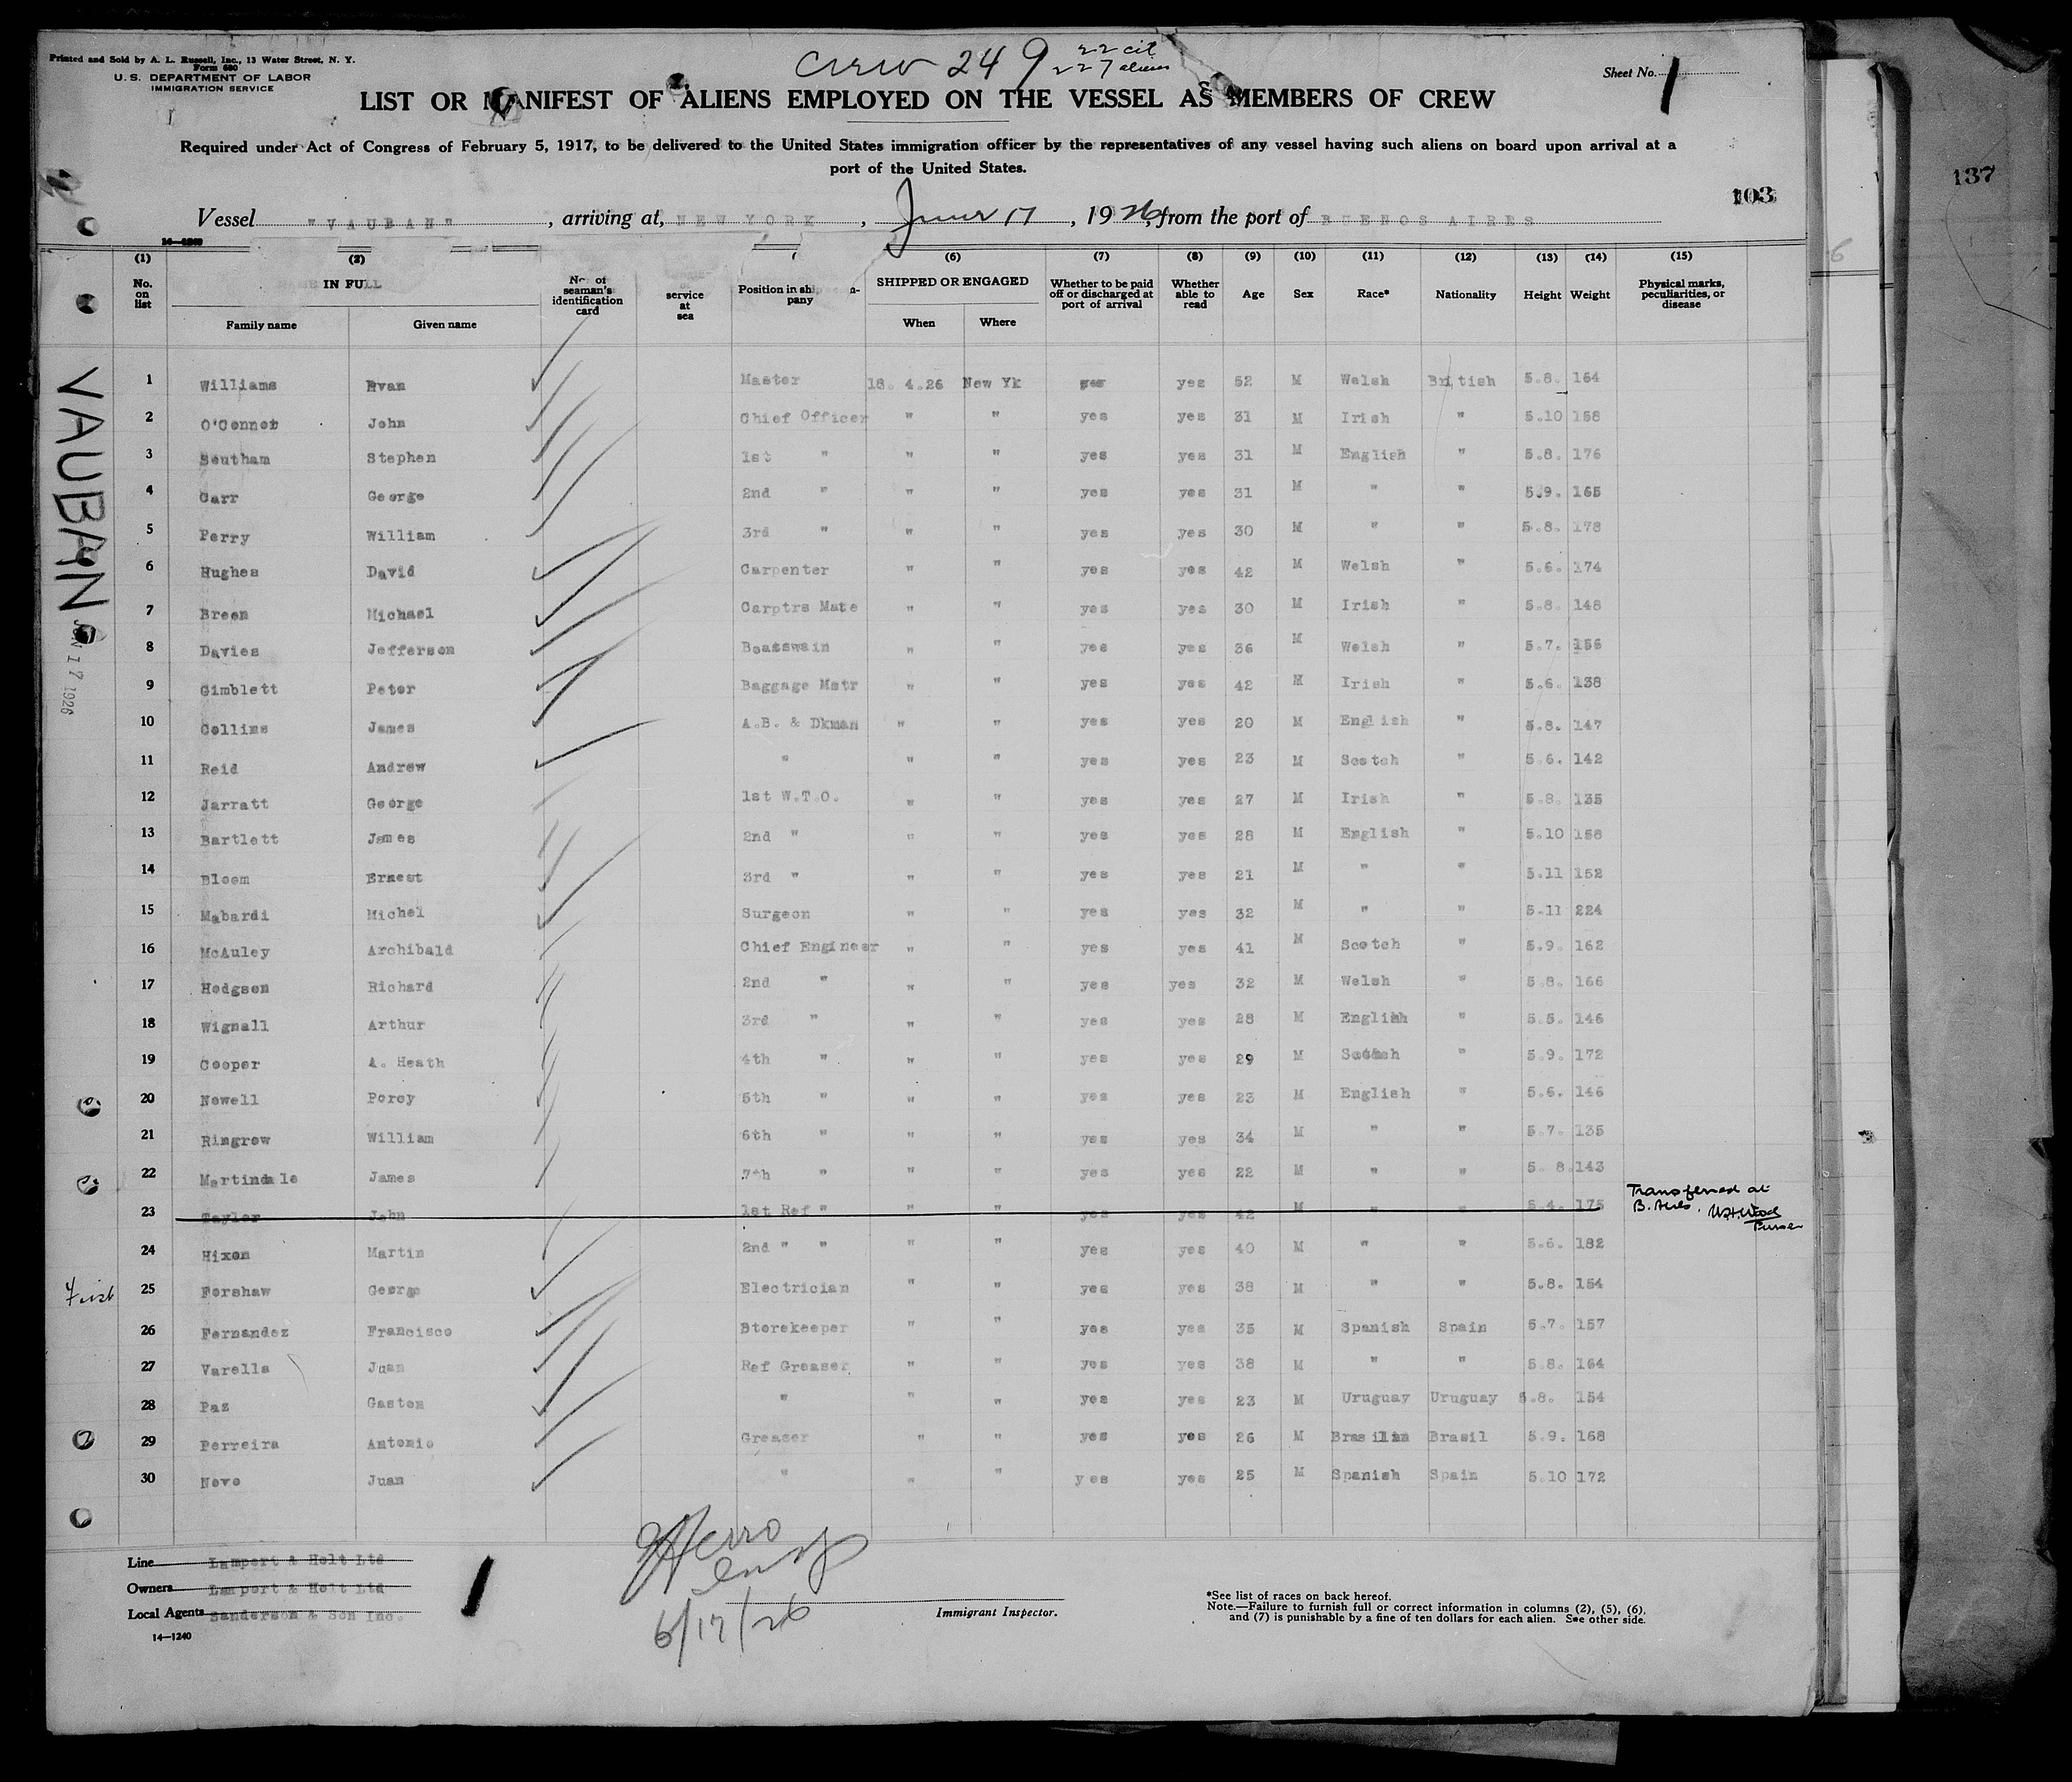 Printed and Sold by A. L. Russell, Inc., 13 Water Street, N. Y.
Form 680
U. S. DEPARTMENT OF LABOR
IMMIGRATION SERVICE
Crew 249 22 cit
227 aliens
Sheet No. 1
LIST OR MANIFEST OF ALIENS EMPLOYED ON THE VESSEL AS MEMBERS OF CREW
Required under Act of Congress of February 5, 1917, to be delivered to the United States immigration officer by the representatives of any vessel having such aliens on board upon arrival at a
port of the United States.
103
137
Vessel "VAUBAN", arriving at, NEW YORK, June 17, 1926, from the port of BUENOS AIRES
(1) (2) (6) (7) (8) (9) (10) (11) (12) (13) (14) (15)
No. on list IN FULL No. of seaman's identification card service at sea Position in ship SHIPPED OR ENGAGED Whether to be paid off or discharged at port of arrival Whether able to read Age Sex Race* Nationality Height Weight Physical marks, peculiarities, or disease
Family name Given name When Where
1 Williams Evan Master 18. 4.26 New Yk yes yes 52 M Welsh British 5.8. 164
2 O'Connor John Chief Officer " " yes yes 31 M Irish " 5.10 158
3 Southam Stephen 1st " " " yes yes 31 M English " 5.8. 176
4 Carr George 2nd " " " yes yes 31 M " " 5.9. 165
5 Perry William 3rd " " " yes yes 30 M " " 5.8. 178
6 Hughes David Carpenter " " yes yes 42 M Welsh " 5.6. 174
7 Breen Michael Carptrs Mate " " yes yes 30 M Irish " 5.8. 148
8 Davies Jefferson Boatswain " " yes yes 36 M Welsh " 5.7. 156
9 Gimblett Peter Baggage Mstr " " yes yes 42 M Irish " 5.6. 138
10 Collins James A.B. & Dkman " " yes yes 20 M English " 5.8. 147
11 Reid Andrew " " " yes yes 23 M Scotch " 5.6. 142
12 Jarratt George 1st W.T.O. " " yes yes 27 M Irish " 5.8. 135
13 Bartlett James 2nd " " " yes yes 28 M English " 5.10 158
14 Bloom Ernest 3rd " " " yes yes 21 M " " 5.11 152
15 Mabardi Michel Surgeon " " yes yes 32 M " " 5.11 224
16 McAuley Archibald Chief Engineer " " yes yes 41 M Scotch " 5.9. 162
17 Hodgson Richard 2nd " " " yes yes 32 M Welsh " 5.8. 166
18 Wignall Arthur 3rd " " " yes yes 28 M English " 5.5. 146
19 Cooper A. Heath 4th " " " yes yes 29 M Scotch " 5.9. 172
20 Newell Percy 5th " " " yes yes 23 M English " 5.6. 146
21 Ringrow William 6th " " " yes yes 34 M " " 5.7. 135
22 Martindale James 7th " " " yes yes 22 M " " 5. 8. 143
23 Taylor John 1st Ref " " " yes yes 42 M " " 5.4. 175 Transferred at
B. Aires. W.H.Wood
Purser
24 Hixon Martin 2nd " " " " yes yes 40 M " " 5.6. 182
25 Forshaw George Electrician " " yes yes 38 M " " 5.8. 154
26 Fernandez Francisco Storekeeper " " yes yes 35 M Spanish Spain 5.7. 157
27 Varella Juan Ref Greaser " " yes yes 38 M " " 5.8. 164
28 Paz Gaston " " " yes yes 23 M Uruguay Uruguay 5.8. 154
29 Perreira Antonio Greaser " " yes yes 26 M Brasilian Brasil 5.9. 168
30 Novo Juan " " " yes yes 25 M Spanish Spain 5.10 172
VAUBAN
JUN 17 1926
First
Line Lamport & Holt Ltd
Owners Lamport & Holt Ltd
Local Agents Sanderson & Son Inc.
14—1240
6/17/26
Immigrant Inspector.
*See list of races on back hereof.
Note.—Failure to furnish full or correct information in columns (2), (5), (6),
and (7) is punishable by a fine of ten dollars for each alien. See other side.